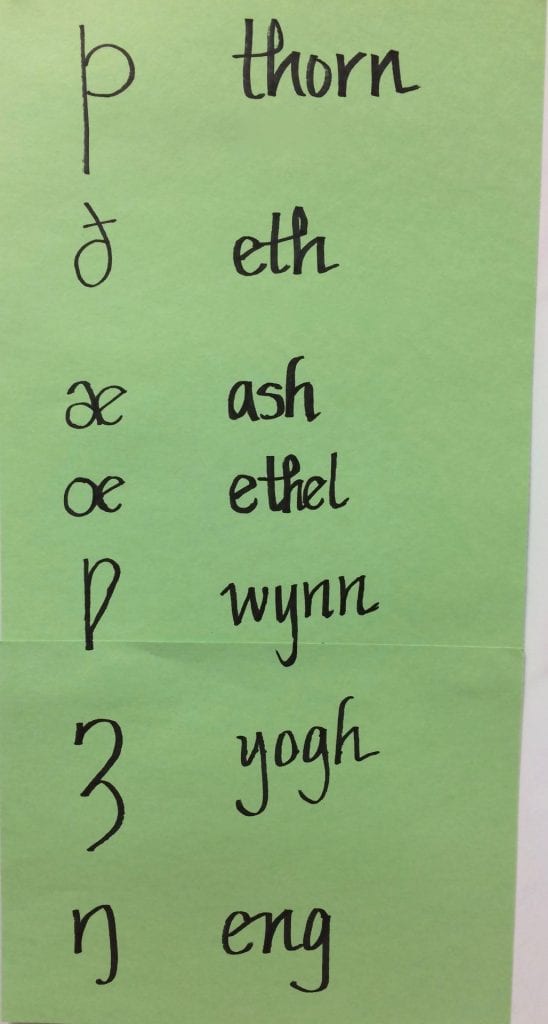 þ thorn
ð eth
æ ash
œ ethel
ƿ wynn
ȝ yogh
ŋ eng